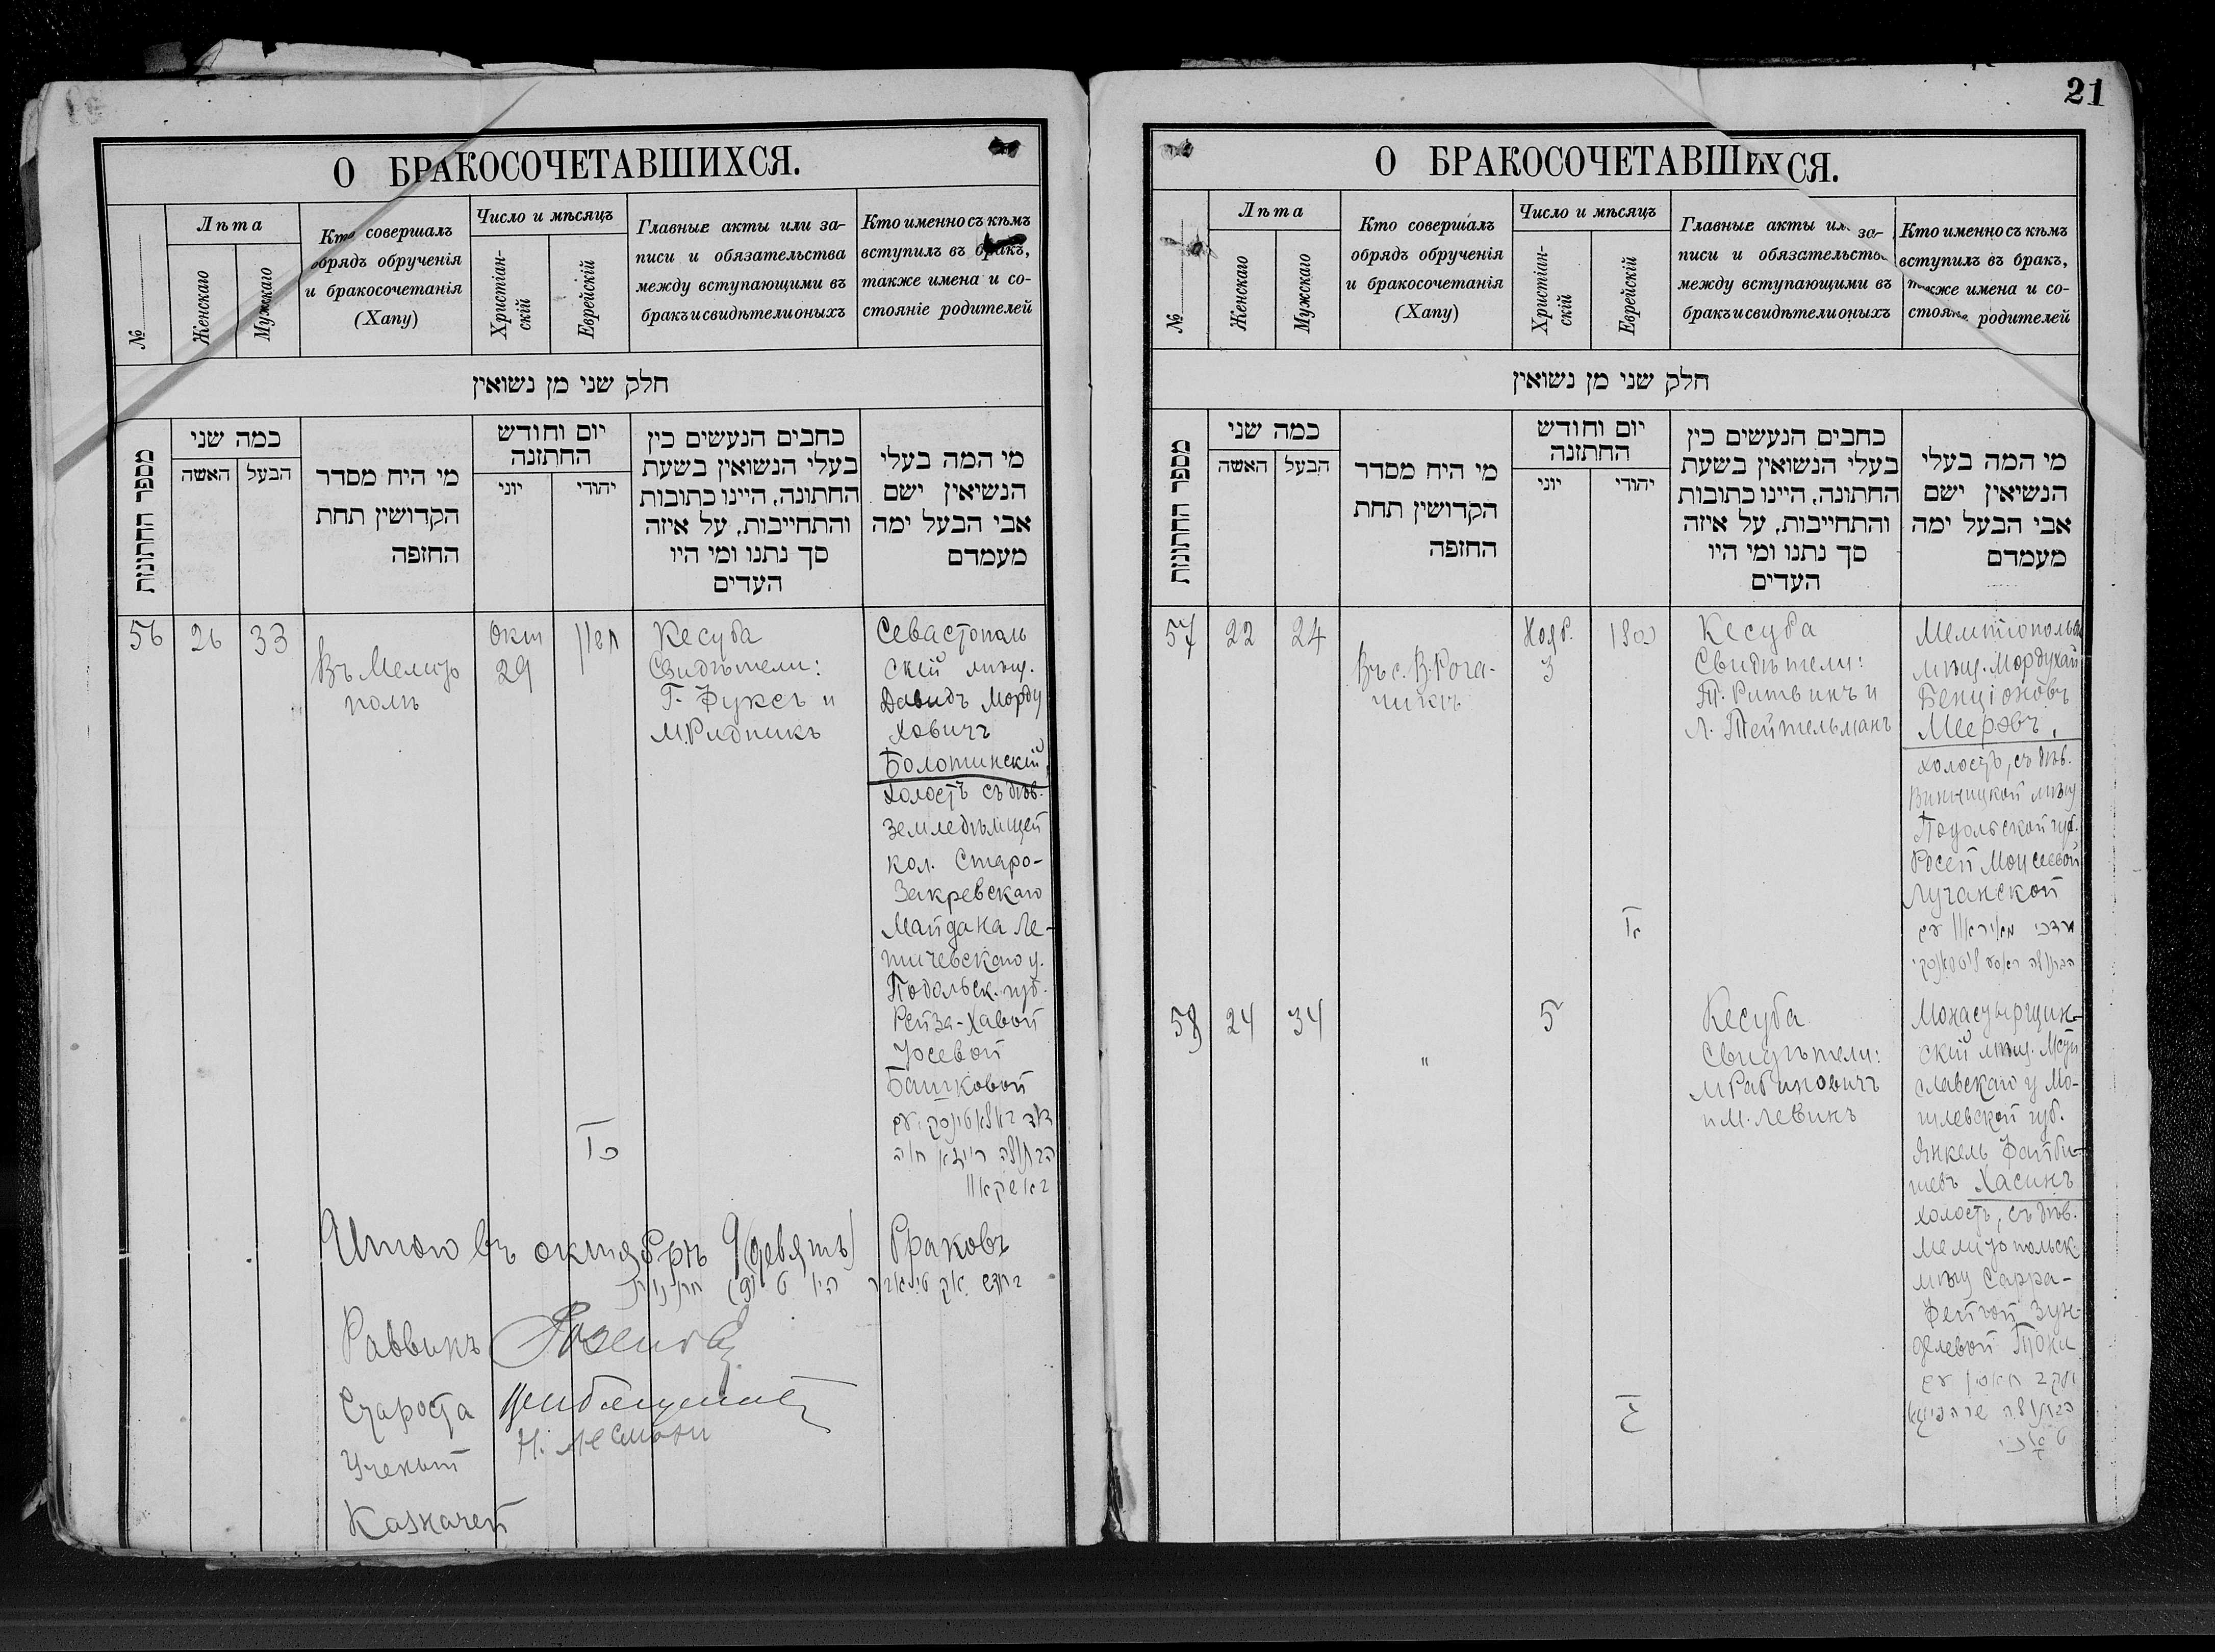 О БРАКОСОЧЕТАВШИХСЯ.
№
Лѣта
Женскаго
Мужскаго
Кто совершалъ
обрядъ обрученія
и бракосочетанія
(Хапу)
Число и мѣсяцъ
Христіан-
скій
Еврейскій
Главные акты или за-
писи и обязательства
между вступающими въ
бракъ и свидѣтели оныхъ
Кто именно съ кѣмъ
вступилъ въ бракъ,
также имена и со-
стояніе родителей
חלק שני מן נשואין
מספר החתונות
כמה שני
האשה
הבעל
מי היח מסדר
הקדושין תחת
החזפה
יום וחודש
החתזנה
יוני
יהודי
כחבים הנעשים כין
בעלי הנשואין בשעת
החתונה, היינו כתובות
והתחייבות, על איזה
סך נתנו ומי היו
העדים
מי המה בעלי
הנשיאין ישם
אבי הבעל ימה
מעמדם
56
26
33
Въ Мелито
полѣ
Окт
29
Кесуба
Свидѣтели:
Г. Фуксъ и
М. Рудникъ
Севастополь
скій мѣщ.
Давидъ Морду
ховичъ
Болотинскій,
холостъ съ дѣв.
кол. Старо-
Закревскаго
Майдана Ле-
тичевскаго у.
Подольск. губ.
Рейза-Хавой
Іосевой
Башковой
דוד באלאטינסקי עם
הבתולה רייזא חוה
באשקאוו
כד
Итого въ октябрѣ 9 (девять) браковъ
בחדש אקטיאבר היו ט חתונות
Раввинъ
Староста
Ученый
Казначей
21
О БРАКОСОЧЕТАВШИХСЯ.
№
Лѣта
Женскаго
Мужскаго
Кто совершалъ
обрядъ обрученія
и бракосочетанія
(Хапу)
Число и мѣсяцъ
Христіан-
скій
Еврейскій
Главные акты или за-
писи и обязательства
между вступающими въ
бракъ и свидѣтели оныхъ
Кто именно съ кѣмъ
вступилъ въ бракъ,
также имена и со-
стояніе родителей
חלק שני מן נשואין
מספר החתונות
כמה שני
האשה
הבעל
מי היח מסדר
הקדושין תחת
החזפה
יום וחודש
החתזנה
יוני
יהודי
כחבים הנעשים כין
בעלי הנשואין בשעת
החתונה, היינו כתובות
והתחייבות, על איזה
סך נתנו ומי היו
העדים
מי המה בעלי
הנשיאין ישם
אבי הבעל ימה
מעמדם
57
22
24
Въ с. В. Рога-
чикѣ
Нояб.
3
Кесуба
Свидѣтели:
Т. Ритвинъ и
Л. Тейтельманъ
мѣщ. Мордухай
Бенціоновъ
Мееровъ,
холостъ, съ дѣв.
Винницкой мѣщ
Подольской губ.
Росей Моисеевой
Луганской
מרדכי מאיראוו עם
58
24
34
"
5
Кесуба
Свидѣтели:
М Рабиновичъ
и М. Левинъ
Монастырщин-
скій мѣщ. Мсти
славскаго у Мо-
гилевской губ.
Янкель Файби-
шевъ Хасинъ
холостъ, съ дѣв.
Мелитопольск.
мѣщ Сарра-
Фейгой Зун-
делевой Токи
יעקב חאסין עם